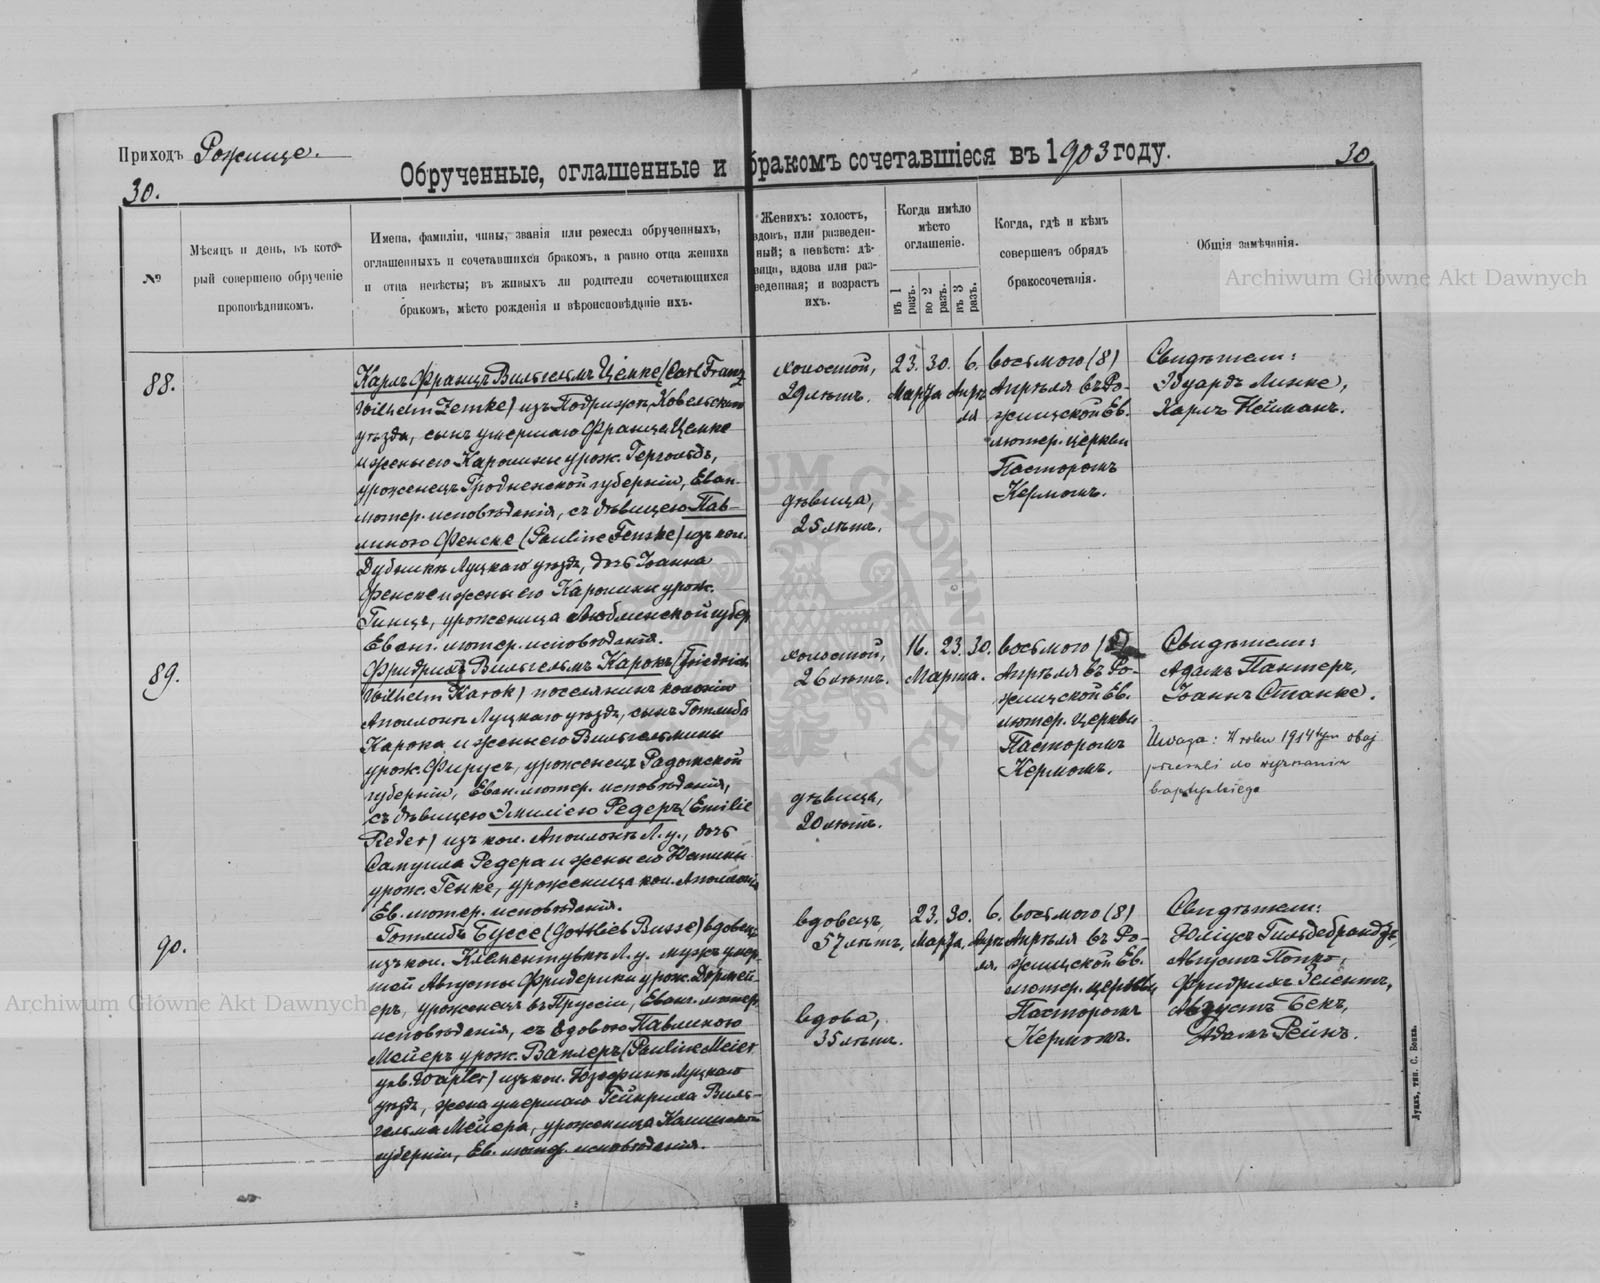 Приходъ Рожище.
Обрученные, оглашенные и бракомъ сочетавшіеся въ 1903 году.
30.
30.
№
Мѣсяцъ и день, въ кото-
рый совершено обрученіе
проповѣдникомъ.
Имена, фамиліи, чины, званія или ремесла обрученныхъ,
оглашенныхъ и сочетавшихся бракомъ, а равно отца жениха
и отца невѣсты; въ живыхъ ли родители сочетающихся
бракомъ, мѣсто рожденія и вѣроисповѣданіе ихъ.
Женихъ: холостъ,
вдовъ, или разведен-
ный; а невѣста: дѣ-
вица, вдова или раз-
веденная; и возрастъ
ихъ.
Когда имѣло
мѣсто
оглашеніе.
въ 1 разъ.
во 2 разъ.
въ 3 разъ.
Когда, гдѣ и кѣмъ
совершенъ обрядъ
бракосочетанія.
Общія замѣчанія.
Archiwum Główne Akt Dawnych
88.
Карлъ Францъ Вильгельмъ Цемке (Carl Franz
Wilhelm Zemke) изъ Подрижъ, Ковельскаго
уѣзда, сынъ умершаго Франца Цемке
и жены его Каролины урож. Герголдъ,
уроженецъ Гродненской губерніи, Еван.
лютер. исповѣданія, съ дѣвицею Пав-
линою Фенске (Pauline Fenske) изъ кол.
Дубники Луцкаго уѣзда, дочь Іоанна
Фенске и жены его Каролины урож.
Гинцъ, уроженица Люблинской губер.
Еванг. лютер. исповѣданія.
холостой,
29 лѣтъ.
дѣвица,
25 лѣтъ.
23. 30. 6.
Марта Апрѣ-
ля
восьмого (8)
Апрѣля въ Ро-
жищской Ев.
лютер. церкви
Пасторомъ
Кермомъ.
Свидѣтели:
Эдуардъ Линке,
Карлъ Нейманъ.
89.
Фридрихъ Вильгельмъ Карокъ (Friedrich
Wilhelm Karok) поселянинъ колоніи
Аполлонъ Луцкаго уѣзда, сынъ Готлиба
Карока и жены его Вильгельмины
урож. Фирусъ, уроженецъ Радомской
губерніи, Еван. лютер. исповѣданія,
съ дѣвицею Эмиліею Редеръ (Emilie
Reder) изъ кол. Аполлонъ Л. у., дочь
Самуила Редера и жены его Юстины
урож. Генке, уроженица кол. Аполлонія
Ев. лютер. исповѣданія.
холостой,
26 лѣтъ.
дѣвица,
20 лѣтъ.
16. 23. 30.
Марта.
восьмого (8)
Апрѣля въ Ро-
жищской Ев.
лютер. церкви
Пасторомъ
Кермомъ.
Свидѣтели:
Адамъ Пантеръ,
Іоаннъ Станке.
Uwaga: W roku 1914 tym obaj
przeszli do wyznania
baptyskiego
90.
Готлибъ Буссе (Gottlieb Busse) вдовецъ
изъ кол. Клементувка Л. у. мужъ умер-
шей Августы Фридерики урож. Дормей-
еръ, уроженецъ въ Пруссіи, Еванг. лютер.
исповѣданія, съ вдовою Павлиною
Мейеръ урож. Ваплеръ (Pauline Meier
geb. Wapler) изъ кол. Юзефинъ Луцкаго
уѣзда, жена умершаго Гейнриха Виль-
гельма Мейера, уроженица Калишской
губерніи, Ев. лютер. исповѣданія.
вдовецъ,
57 лѣтъ.
вдова,
35 лѣтъ.
23. 30. 6.
Марта. Апрѣ-
ля.
восьмого (8)
Апрѣля въ Ро-
жищской Ев.
лютер. церкви
Пасторомъ
Кермомъ.
Свидѣтели:
Юліусъ Гильдебрандъ,
Августъ Попко,
Фридрихъ Зелентъ,
Августъ Бекъ,
Адамъ Рейнъ.
Archiwum Główne Akt Dawnych
Луцкъ, тип. С. Бокъ.